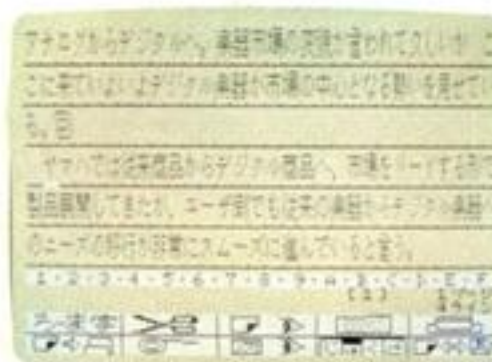 アナログからデジタルへ。楽器市場の変換が言われて久しいが こ
こに来ていよいよデジタル楽器が市場の中心となる勢いを見せてい
る。
ヤマハでは従来商品からデジタル商品へ、市場をリードする形で
製品展開してきたが、ユーザ側でも従来の楽器からデジタル楽器へ
のニーズの移行が非常にスムーズに進んでいると言う。
1・2・3・4・5・6・7・8・9・A・B・C・D・E・F